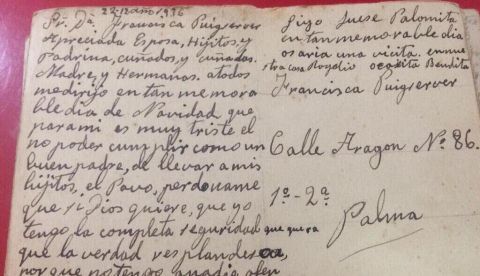 22-12 año 1936
Sr. Dª. Francisca Puigserver
Apreciada Esposa, Hijitos, y
Padrina, cuñados, y cuñadas.
Madre, y Hermanos. atodos
medirijo en tan memora
ble dia de Navidad que
parami es muy triste el
no poder cumplir como un
buen padre, de llevar a mis
hijitos, el Pavo, perdoname
que si Dios quiere, que yo
tengo, la completa seguridad que que ra
que la verdad resplandesca,
porque no tengo anadia ofen
Sigo fuese Palomita
en tan memorable dia
os aria una vicita. en nues
tra casa Rogelio ocasita Bendita
Francisca Puigserver
Calle Aragon Nº 86.
1º-2ª
Palma